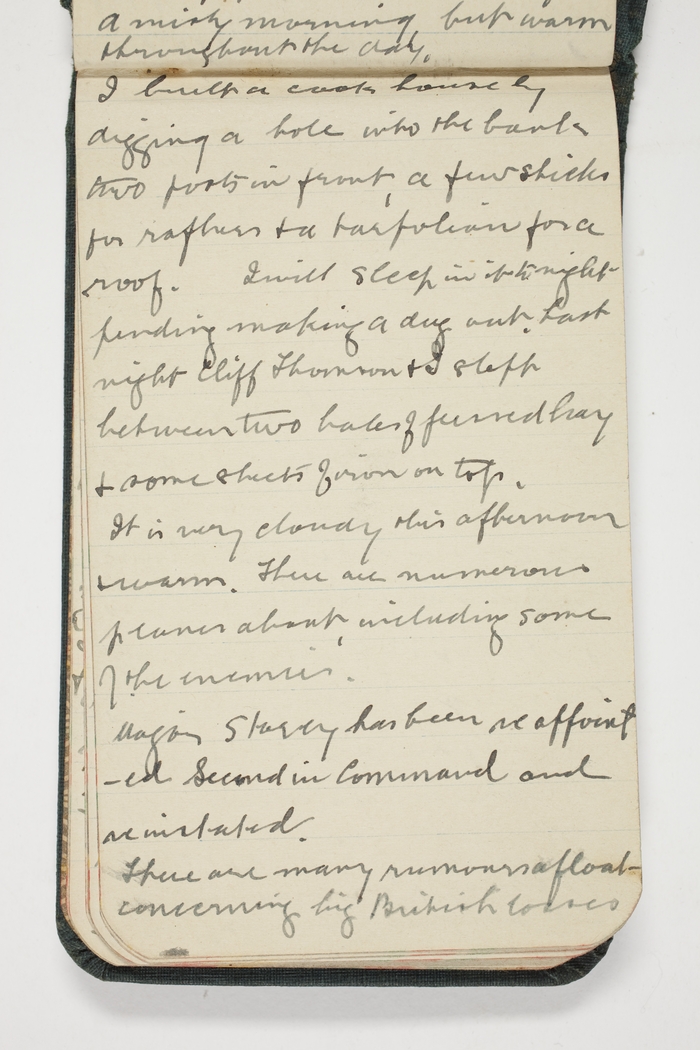 a misty morning but warm
throughout the day.
I built a cook house by
digging a hole into the bank
two posts in front, a few sticks
for rafters & a tarpolian for a
roof. I will sleep in it to night
pending making a dug out. Last
night Cliff Thomson & I slept
between two bales of pressed hay
& some sheets of iron on top.
It is very cloudy this afternoon
& warm. There are numerous
planes about, including some
of the enemies.
Major Stacey has been reappoint
-ed Second in Command and
reinstated.
There are many rumours afloat
concerning big British losses